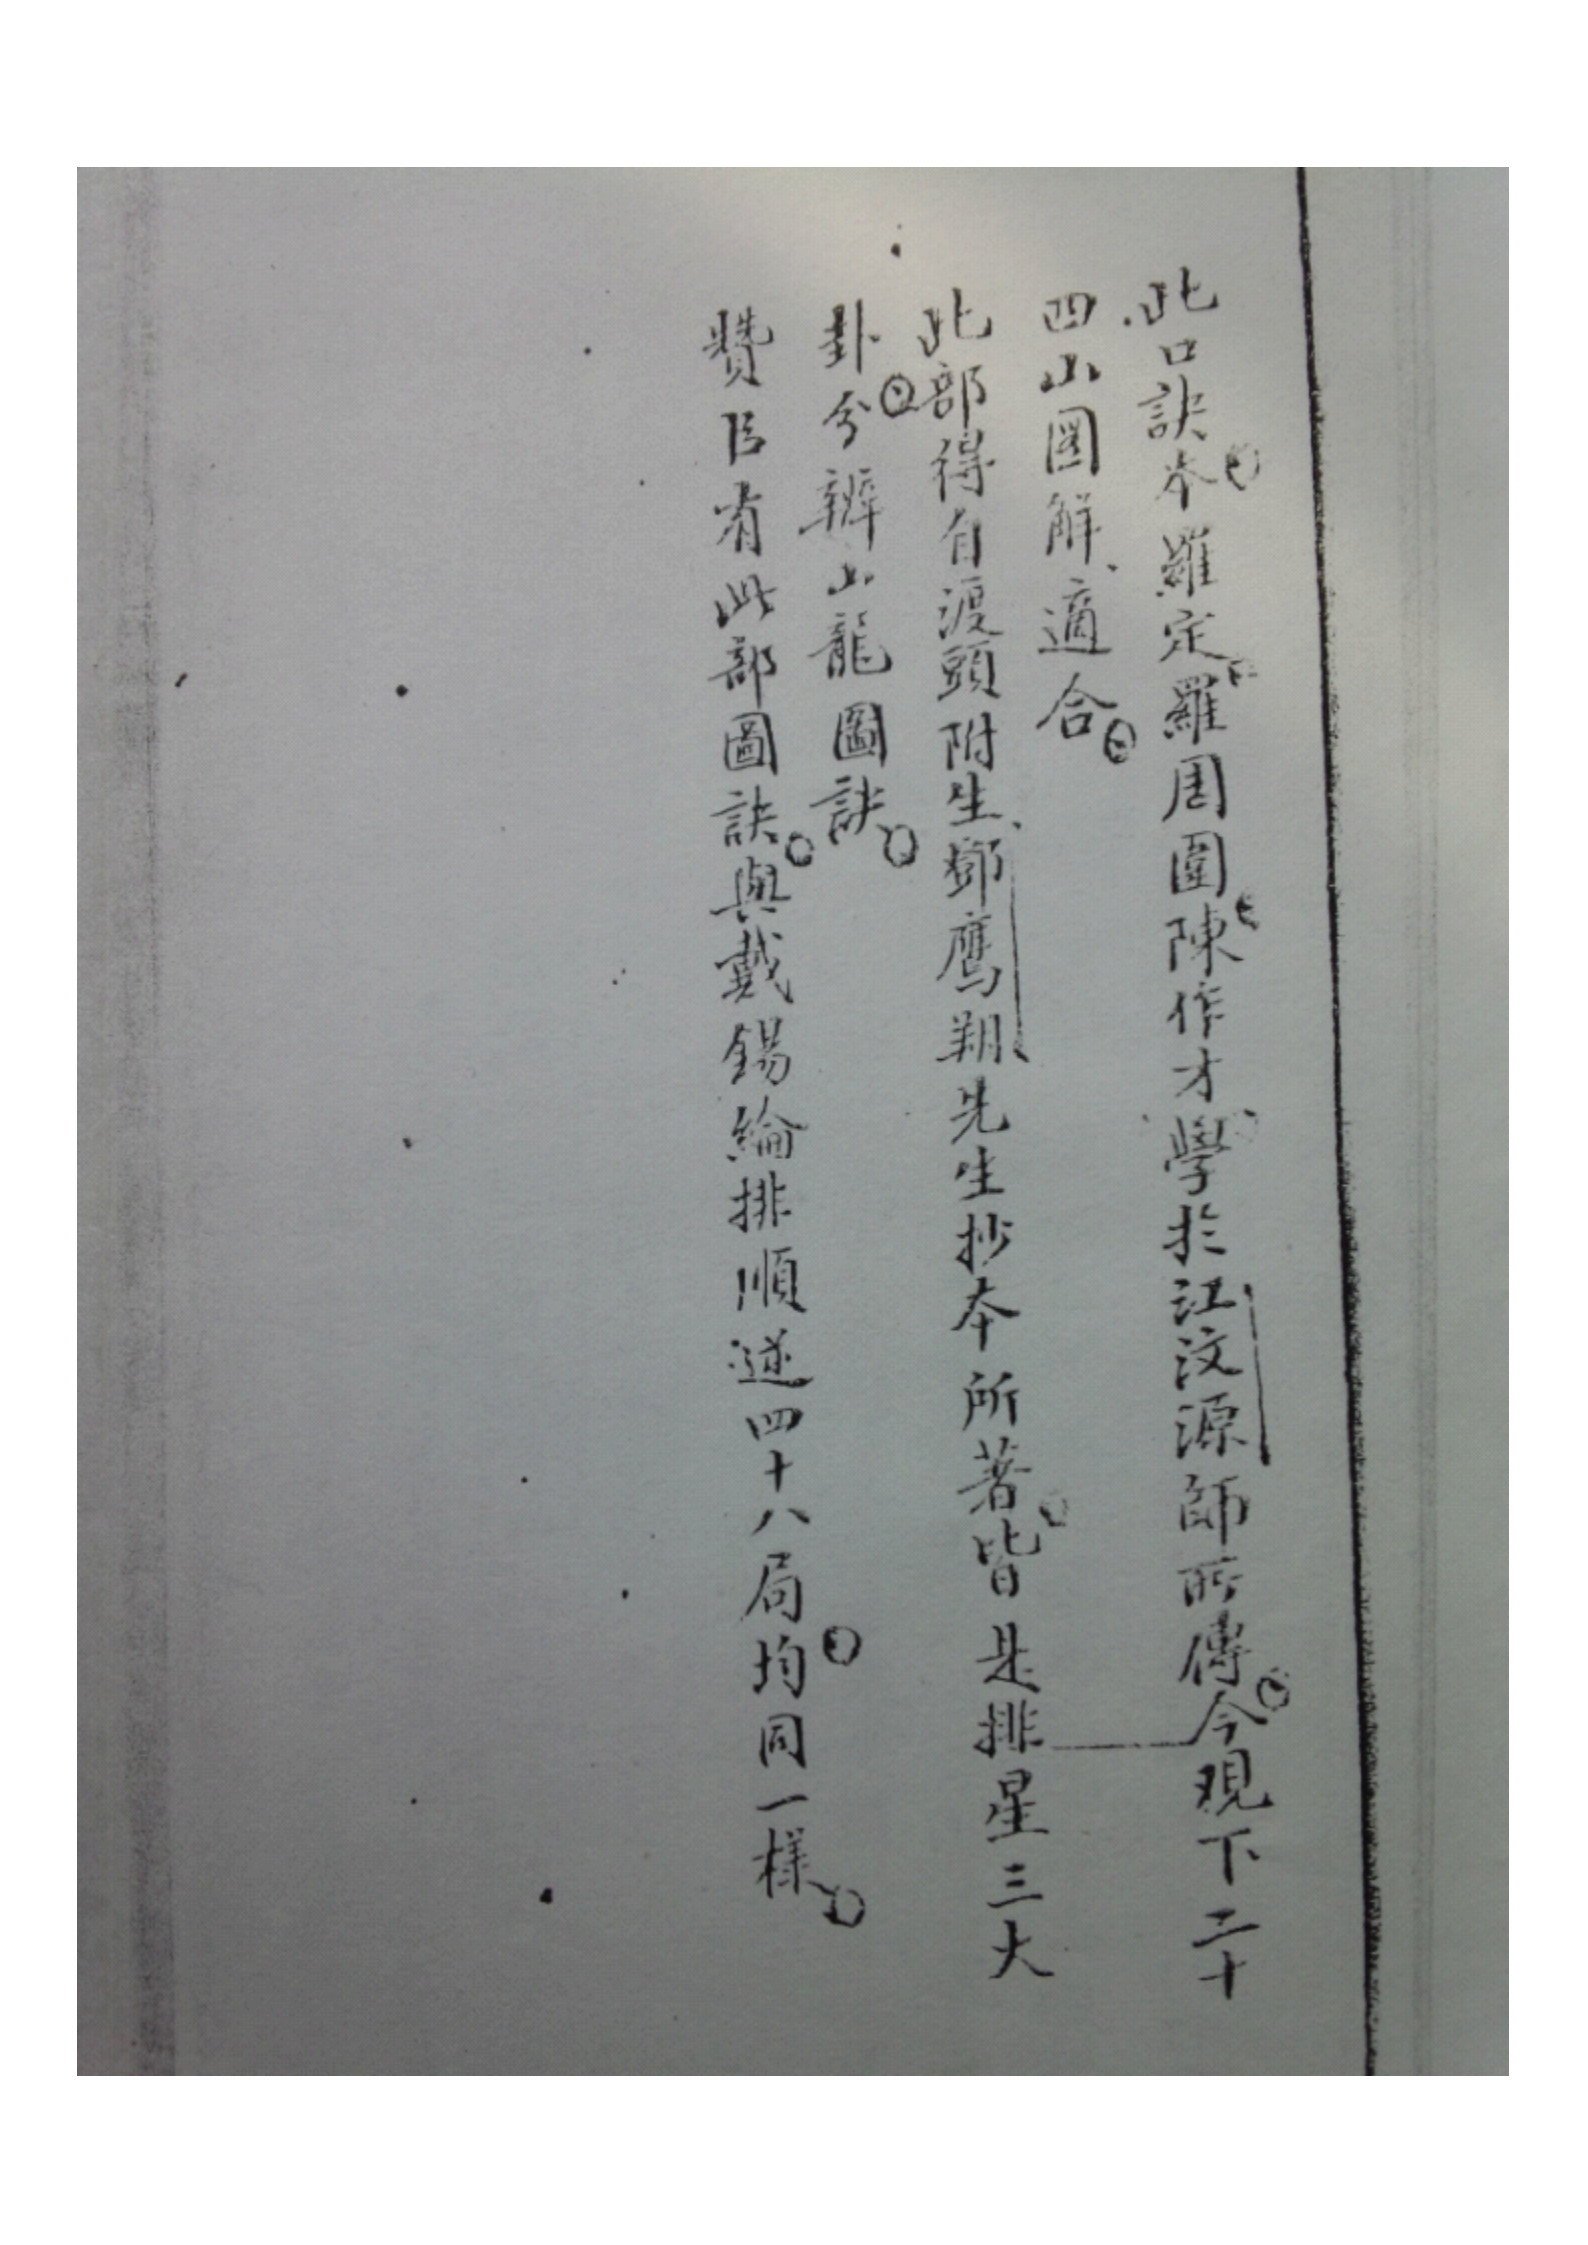 此口訣本羅定羅周圍陳作才學於江汶源師所傳今現下二十
四山圖解適合
此部得自渡頭附生鄧鹰翔先生抄本所著皆是排星三大
卦分辨山龍圖訣
贊臣有此部圖訣與戴錫綸排順逆四十八局均同一樣